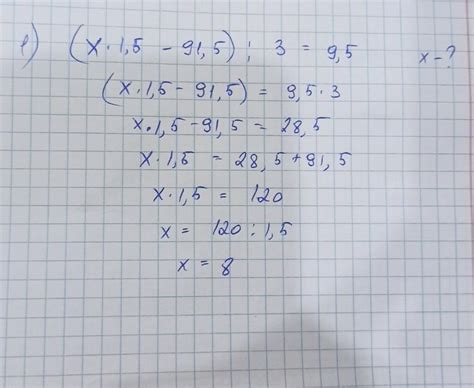 1) (x·1,5 - 91,5) : 3 = 9,5 x - ?
(x·1,5 - 91,5) = 9,5·3
x·1,5 - 91,5 = 28,5
x·1,5 = 28,5 + 91,5
x·1,5 = 120
x = 120 : 1,5
x = 8